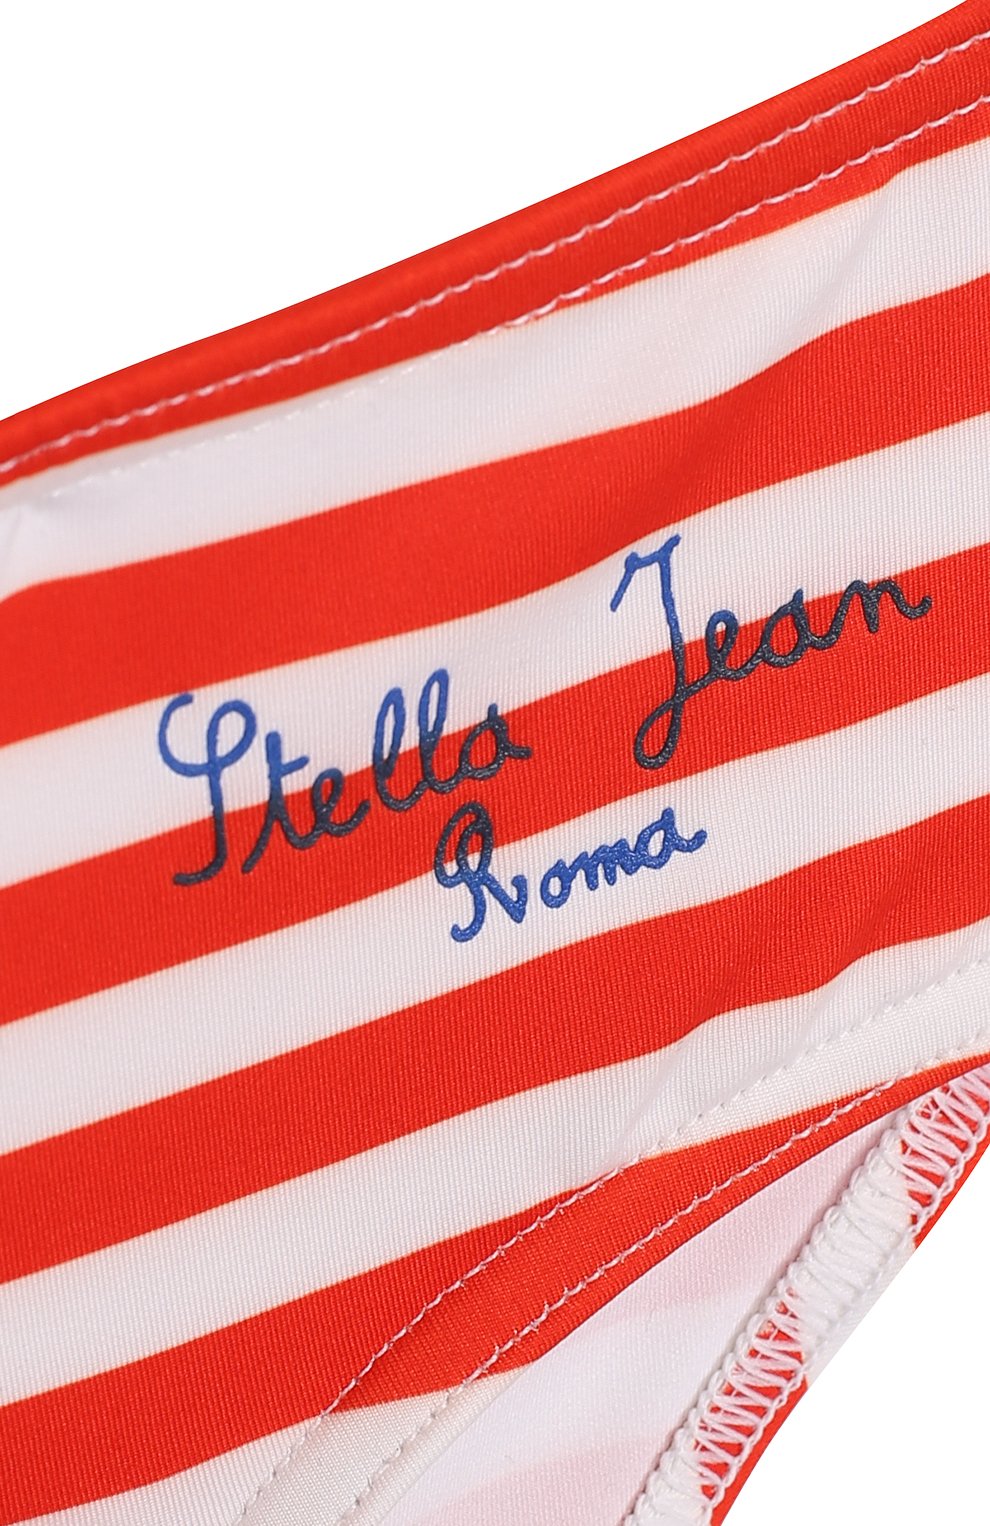 Stella Jean
Roma